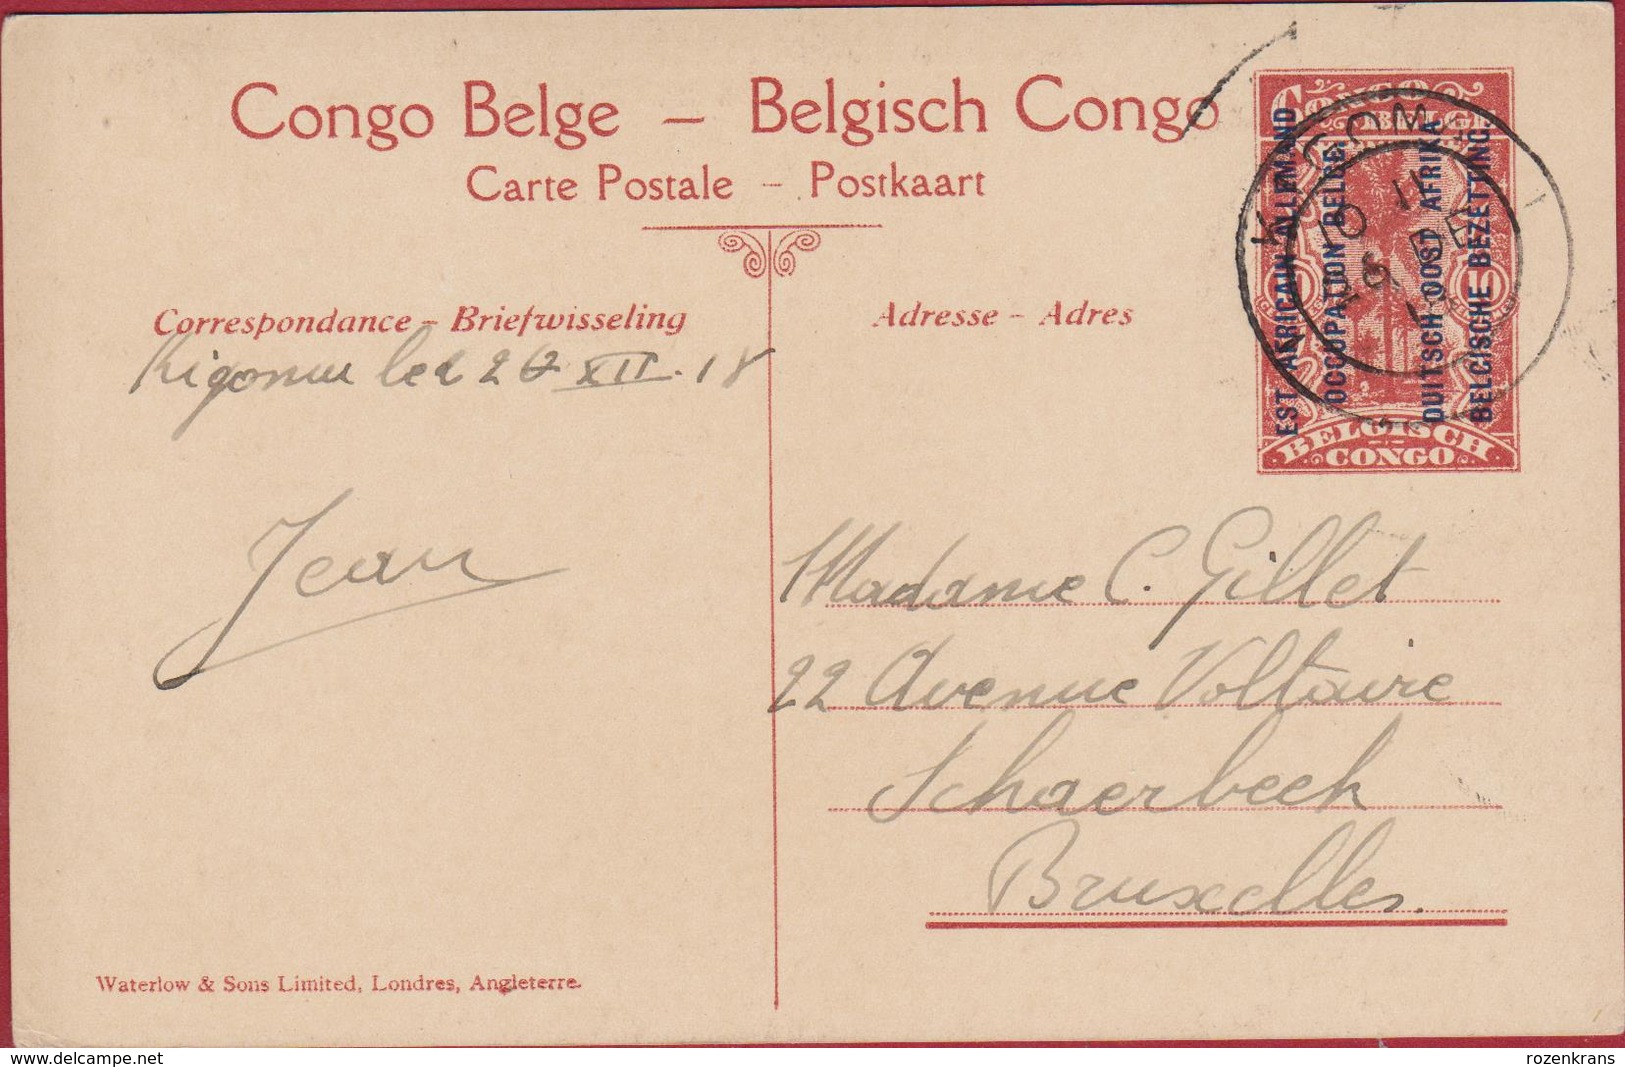 Congo Belge – Belgisch Congo
Carte Postale – Postkaart
Correspondance – Briefwisseling
Adresse – Adres
CONGO
BELGE
EST AFRICAIN ALLEMAND
OCCUPATION BELGE.
DUITSCH OOST AFRIKA
BELGISCHE BEZETTING.
10
10
BELGISCH
CONGO
KIGOMA
10 11
26 DE
Kigoma le 26 XII. 18
Jean
Madame C. Gillet
22 Avenue Voltaire
Schaerbeek
Bruxelles.
Waterlow & Sons Limited, Londres, Angleterre.
www.delcampe.net
rozenkrans